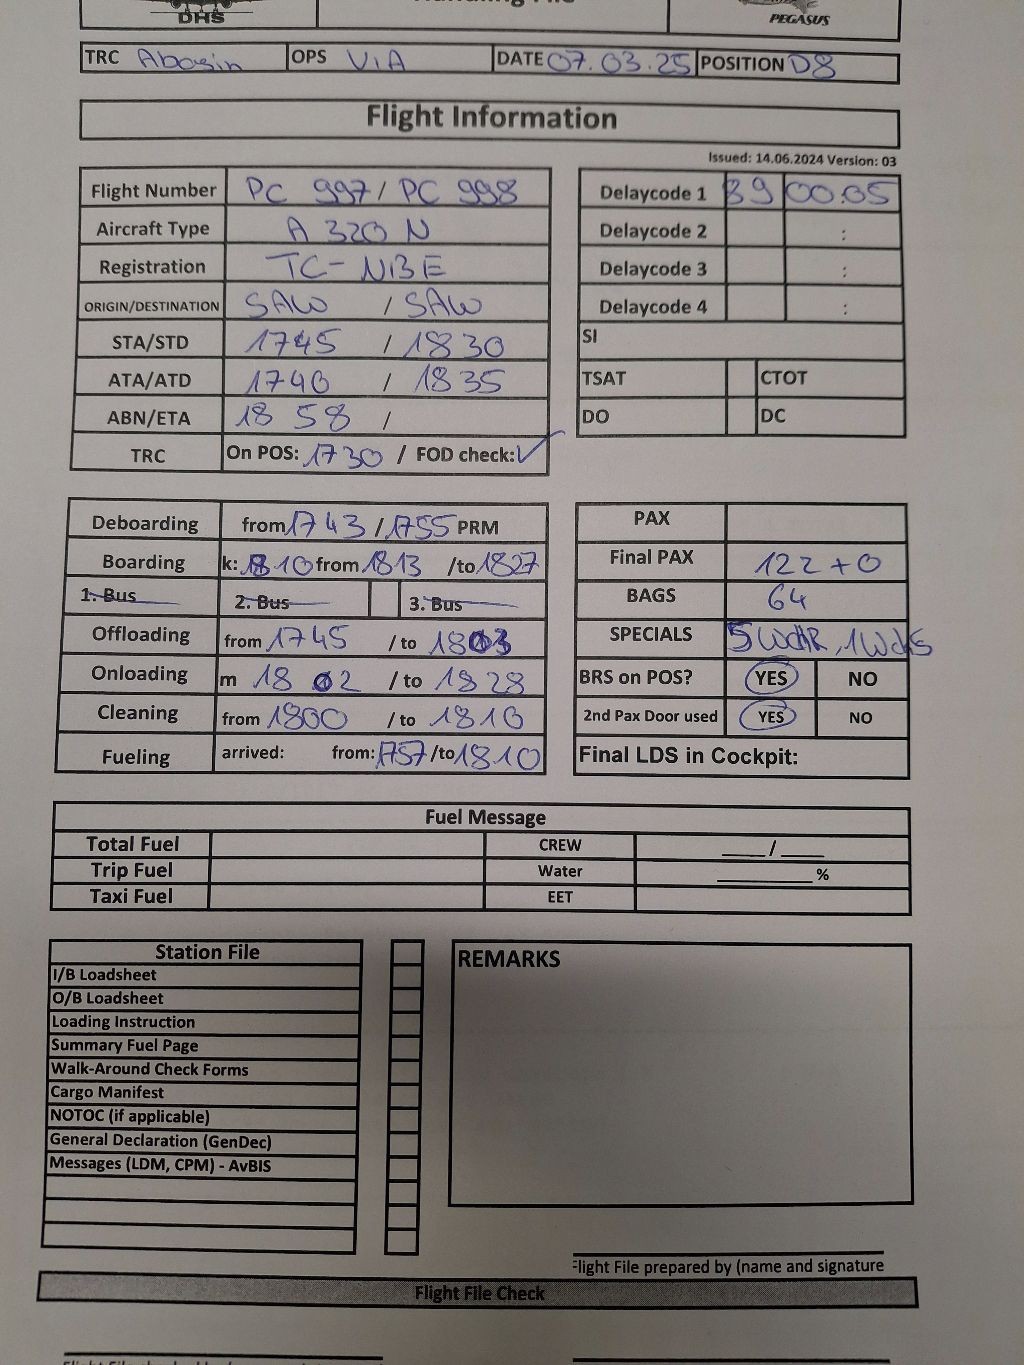 DHS
PEGASUS
TRC Abasin OPS ViA DATE 07.03.25 POSITION D8
Flight Information
Issued: 14.06.2024 Version: 03
Flight Number PC 997 / PC 998
Aircraft Type A 320 N
Registration TC-NBE
ORIGIN/DESTINATION SAW / SAW
STA/STD 1745 / 1830
ATA/ATD 1740 / 1835
ABN/ETA 18 58 /
TRC On POS: 1730 / FOD check: ✓
Delaycode 1 89 00:05
Delaycode 2 :
Delaycode 3 :
Delaycode 4 :
SI
TSAT CTOT
DO DC
Deboarding from 1743 / 1755 PRM
Boarding k: 1810 from 1813 /to 1827
1. Bus 2. Bus 3. Bus
Offloading from 1745 / to 1803
Onloading m 18 02 / to 1828
Cleaning from 1800 / to 1810
Fueling arrived: from: 1757 /to 1810
PAX
Final PAX 122 + 0
BAGS 64
SPECIALS 5 WCHR, 1 WCHS
BRS on POS? YES NO
2nd Pax Door used YES NO
Final LDS in Cockpit:
Fuel Message
Total Fuel CREW ____/____
Trip Fuel Water ________%
Taxi Fuel EET
Station File
I/B Loadsheet
O/B Loadsheet
Loading Instruction
Summary Fuel Page
Walk-Around Check Forms
Cargo Manifest
NOTOC (if applicable)
General Declaration (GenDec)
Messages (LDM, CPM) - AvBIS
REMARKS
Flight File prepared by (name and signature
Flight File Check